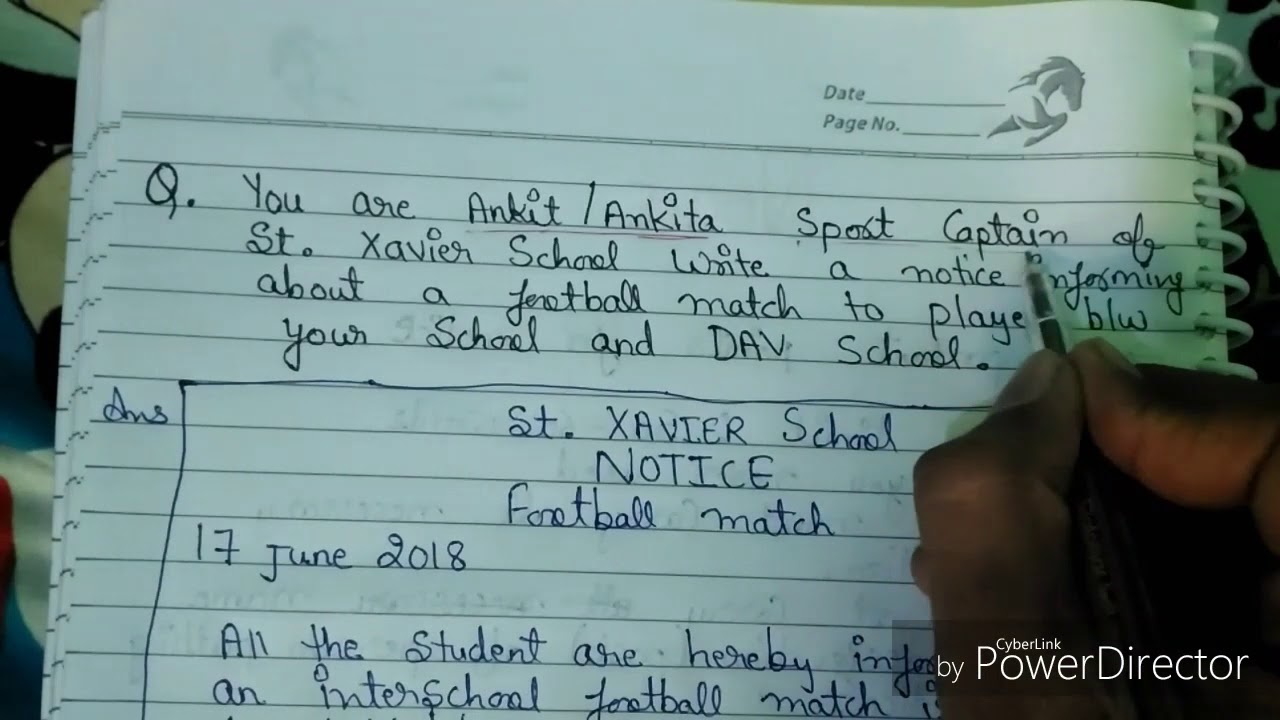 Date
Page No.
Q. You are Ankit/Ankita Spost Captain of
St. Xavier School write a notice informing
about a football match to playe b/w
your School and DAV School.
Ans
St. XAVIER School
NOTICE
Football match
17 June 2018
All the student are hereby
an interschool football match
CyberLink
by PowerDirector